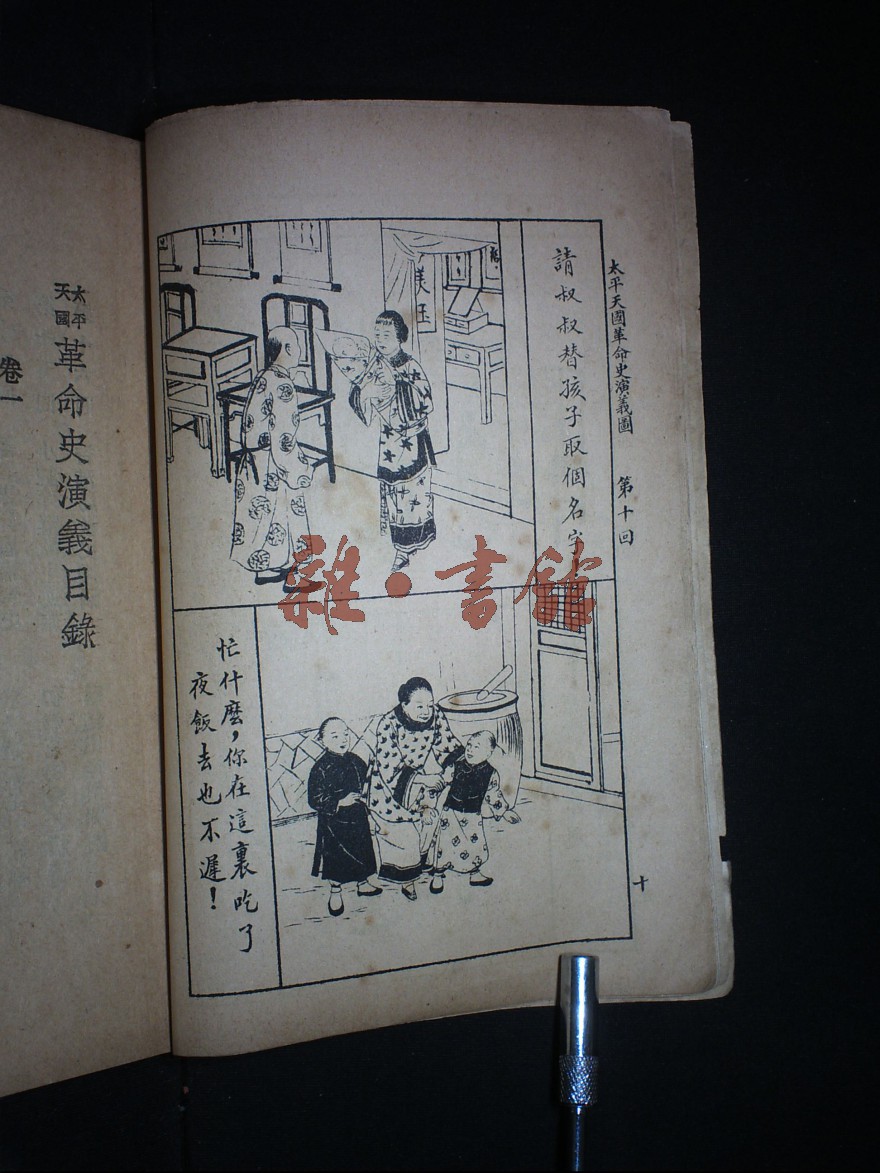 太平天國革命史演義圖 第十回
十
請叔叔替孩子取個名字
美玉
忙什麼，你在這裏吃了
夜飯去也不遲！
太平天國革命史演義目錄
卷一
雜·書館